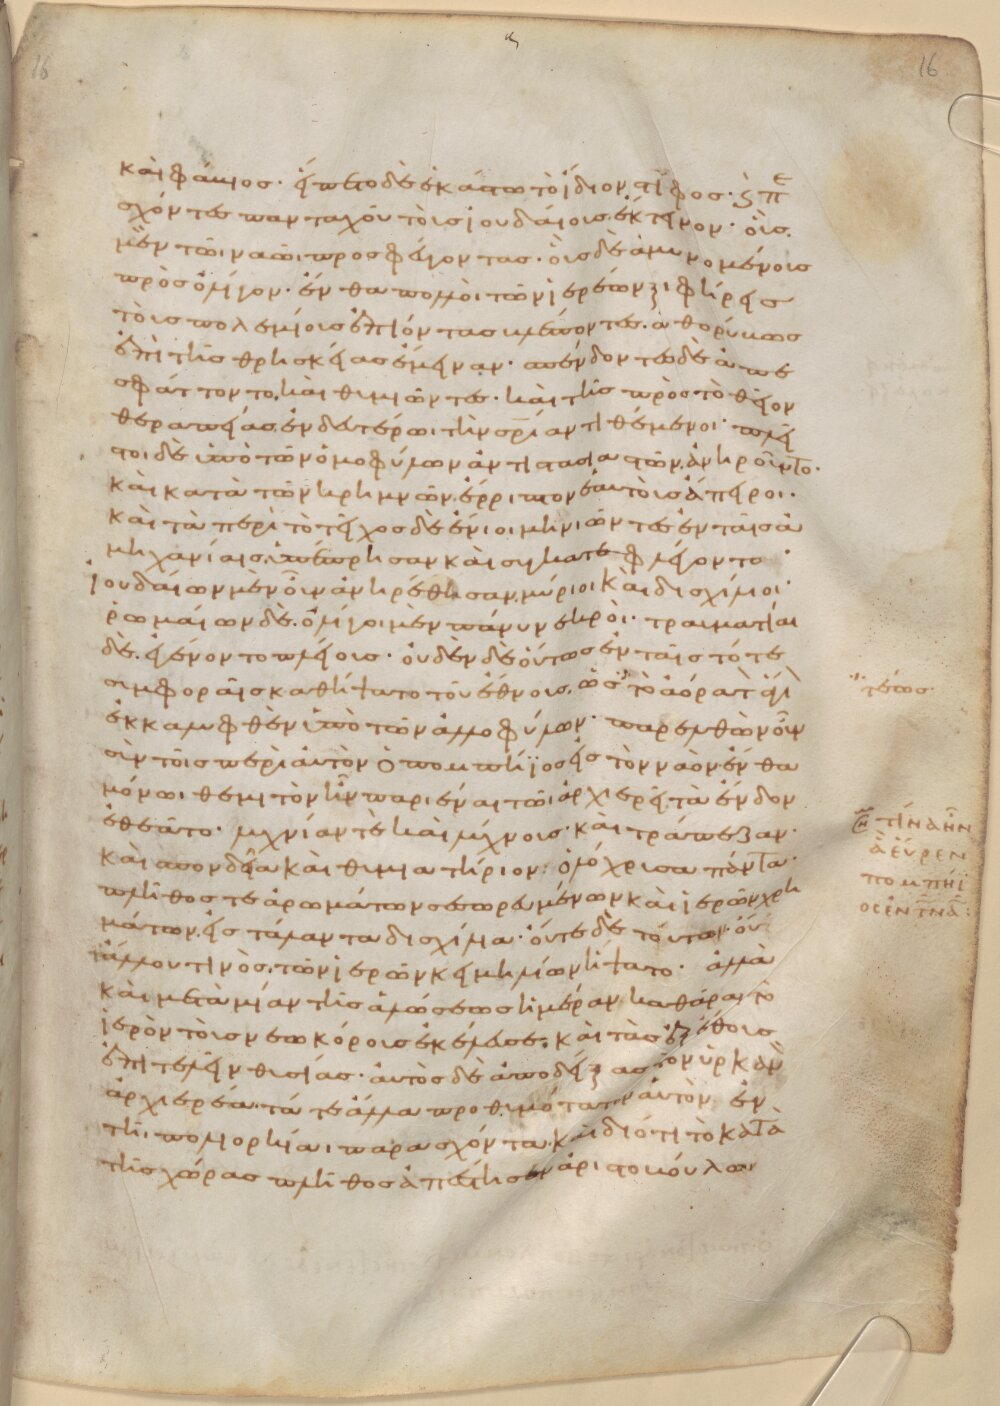 16
16
καὶ φάβιος· ἕπετο δὲ ἑκάστω τὸ ἴδιον στῖφος· ϗ πε
σχόντες πανταχοῦ τοῖς ἰουδαίοις ἔκτεινον· οὓς
μὲν τῶι ναῶι προσφεύγοντας· οὓς δὲ ἀμυνομένοις
πρὸς ὀλίγον· ἔνθα πολλοὶ τῶν ἱερέων ξιφήρεις
τοὺς πολεμίους ἐπιόντας βλέποντες· ἀθορύβως
ἐπὶ τῆς θρησκείας ἔμειναν· σπένδοντες δὲ ἀπε
σφάττοντο, καὶ θυμιῶντες· καὶ τῆς πρὸς τὸ θεῖον
θεραπείας ἐν δευτέρωι τὴν σρίαν τιθέμενοι· πλεῖ
στοι δὲ ὑπὸ τῶν ὁμοφύλων ἀντιστασιαστῶν ἀνηροῦντο·
καὶ κατὰ τῶν κρημνῶν ἔρριπτον ἑαυτοὺς ἄπειροι·
καὶ τὰ περὶ τὸ τεῖχος δὲ ἔνιοι μηνιῶντες ἐν ταῖς ἀ
μηχανίαις ὑπέπρησαν καὶ συγκατεφλέγοντο·
ἰουδαίων μὲν οὖν ἀνηρέθησαν μύριοι καὶ δισχίλιοι·
ῥωμαίων δὲ, ὀλίγοι μὲν πάνυ νεκροί· τραυματίαι
δὲ ἐγένοντο πλείους· οὐδὲν δὲ οὕτως ἐν ταῖς τότε
συμφοραῖς καθήψατο τοῦ ἔθνους, ὡς τὸ ἀόρατον ἅγιον
τέως
ἐκκαλυφθὲν ὑπὸ τῶν ἀλλοφύλων· παρελθὼν οὖν
σὺν τοῖς περὶ αὐτὸν ὁ πομπήϊος εἰς τὸν ναὸν ἔνθα
μόνωι θεμιτὸν ἦν παριέναι τῶι ἀρχιερεῖ, τὰ ἔνδον
ἐθεᾶτο· λυχνίαν τὲ καὶ λύχνους· καὶ τράπεζαν·
τίνα ἦν
ἃ εὗρεν
πομπήϊ
ος ἐν τῶ ναῶ:
καὶ σπονδεῖα καὶ θυμιατήριον: ὁλόχρυσα πάντα·
πλῆθος τε ἀρωμάτων σεσωρευμένων καὶ ἱερῶν χρη
μάτων, εἰς τάλαντα δισχίλια· οὔτε δὲ τούτων· οὔτ
ἄλλου τινὸς, τῶν ἱερῶν κειμηλίων ἥψατο· ἀλλὰ
καὶ μετὰ μίαν τῆς ἁλώσεως ἡμέραν καθᾶραι τὸ
ἱερὸν τοῖς νεωκόροις ἐκέλευσε· καὶ τὰς ἐξ ἔθους
ἐπιτελεῖν θυσίας· αὐτὸς δὲ ἀποδείξας τὸν ὑρκανὸν
ἀρχιερέα· τά τε ἄλλα προθυμότατον αὐτὸν ἐν
τῆι πολιορκίαι παρασχόντα καὶ διότι τὸ κατὰ
τῆς χώρας πλῆθος ἀπέστησεν ἀριστοβούλω